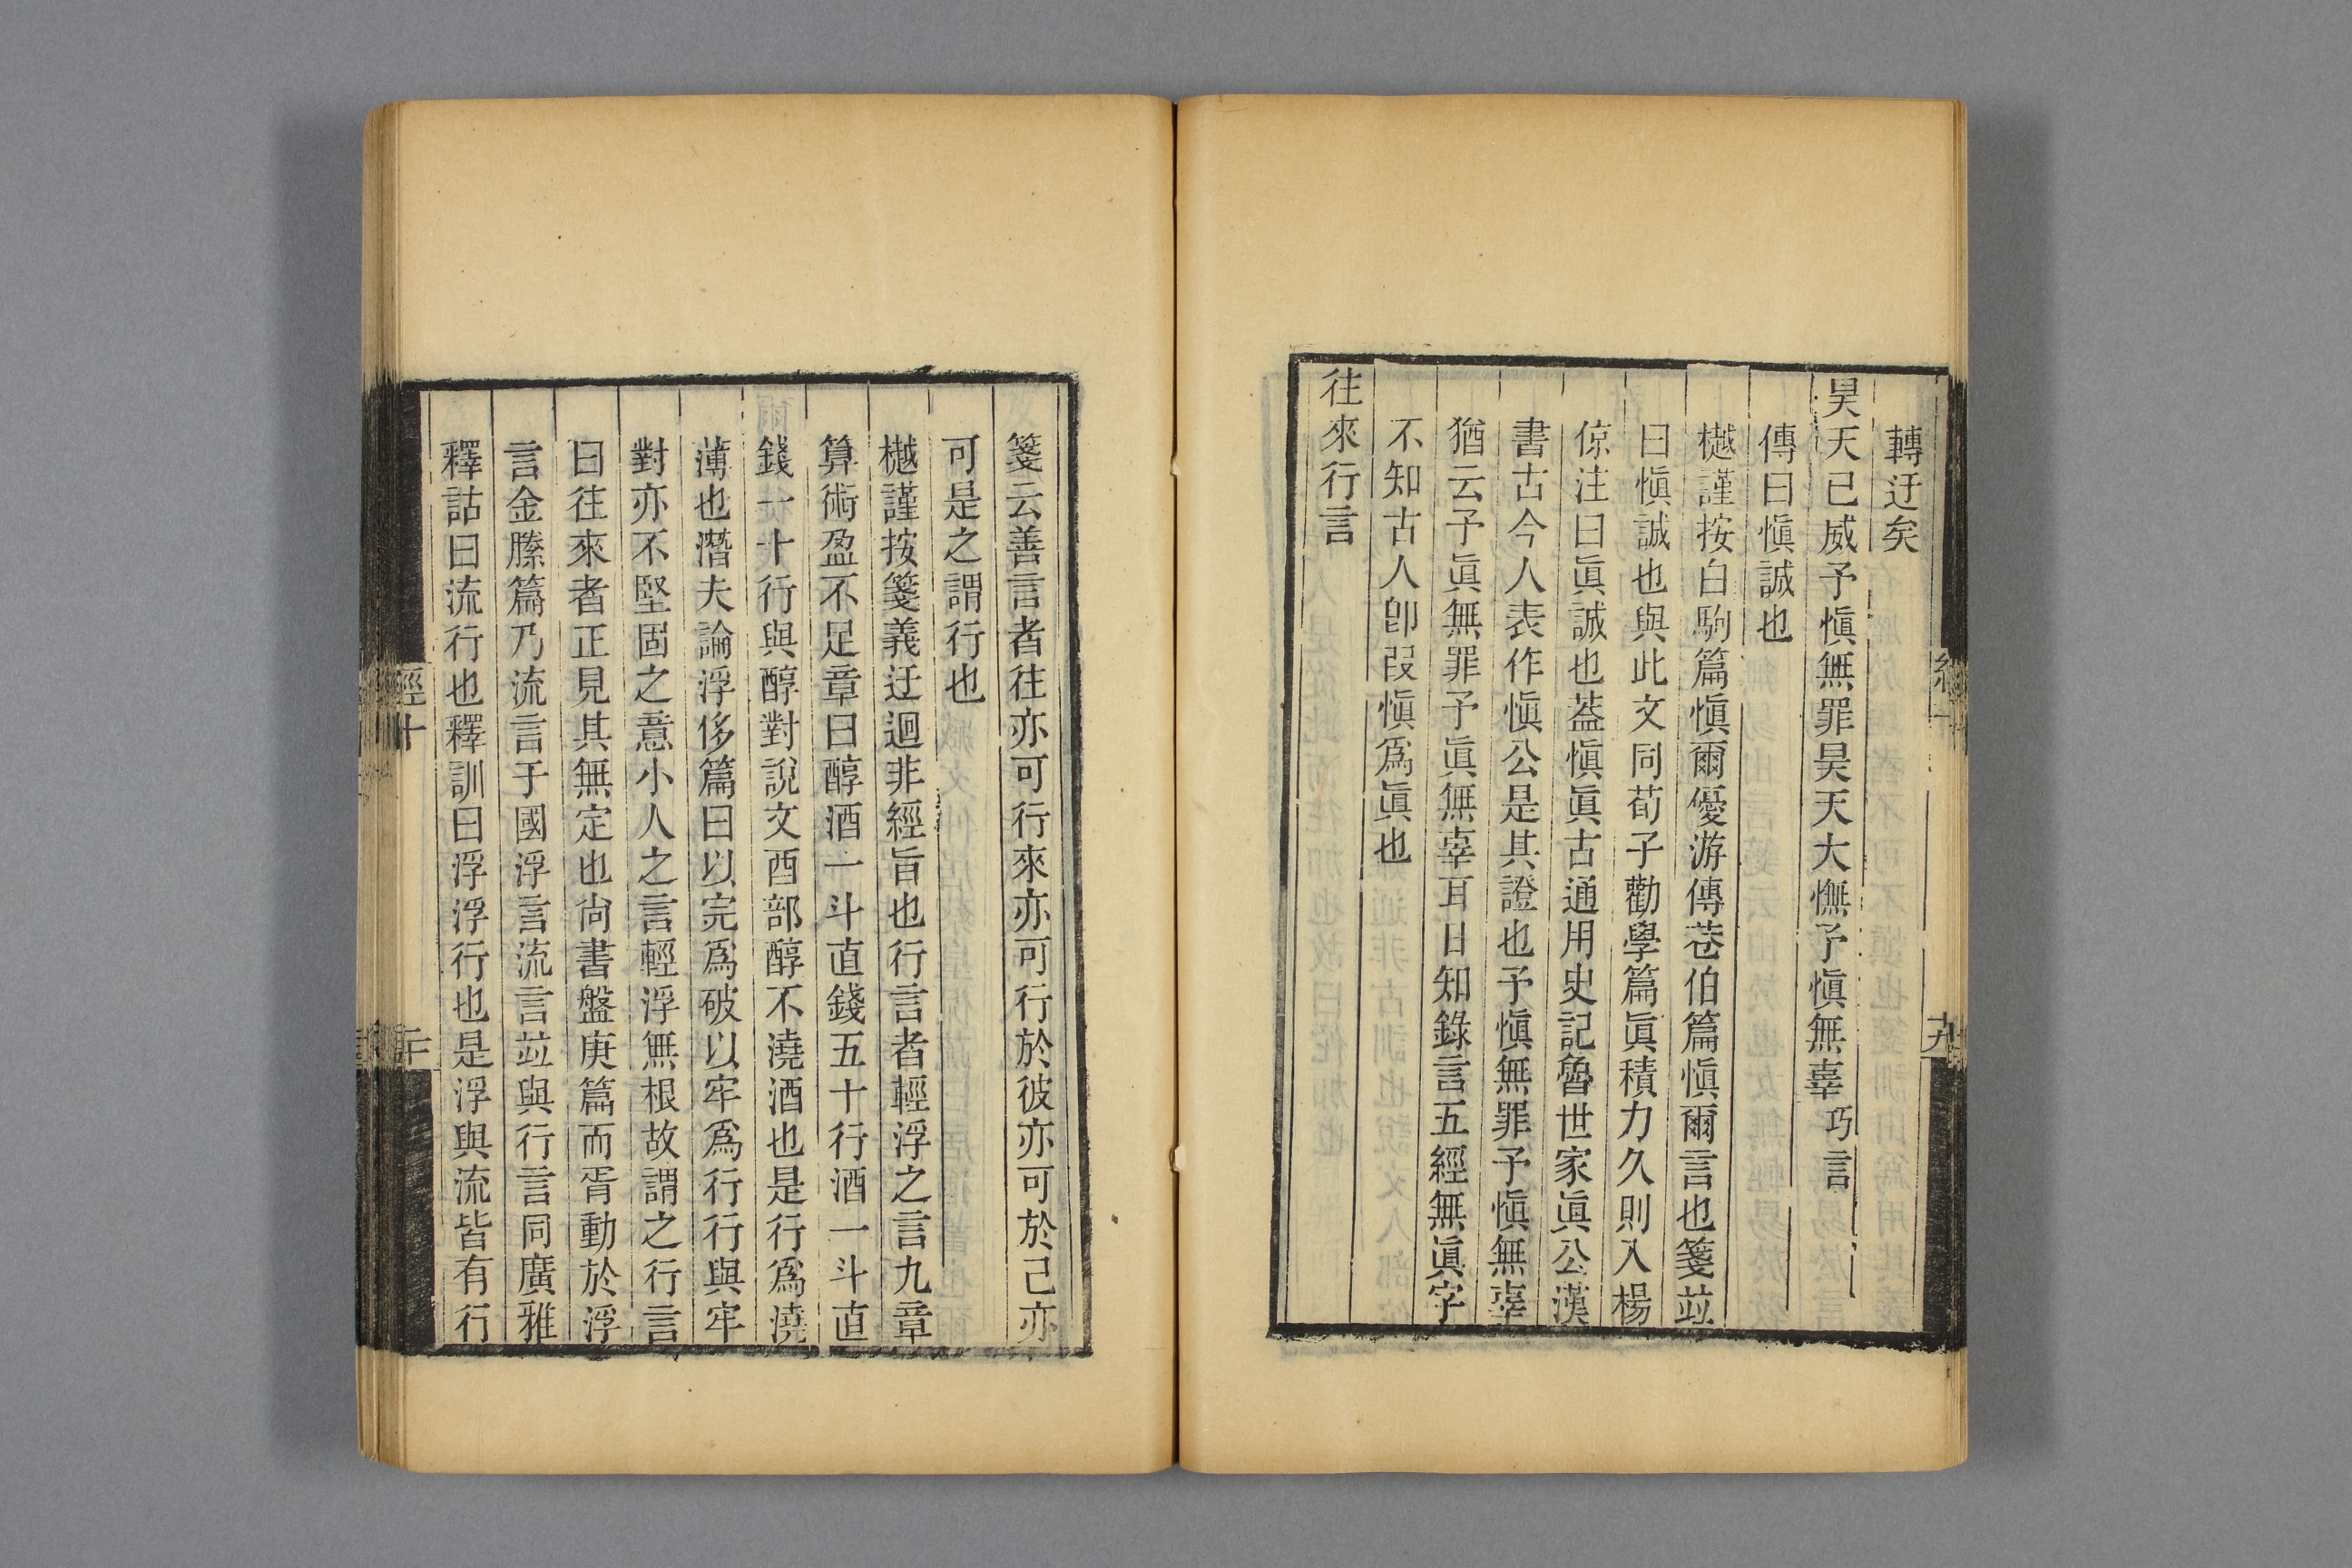 轉迂矣
昊天已威予愼無罪昊天大憮予愼無辜巧言
傳曰愼誠也
樾謹按白駒篇愼爾優游傳巷伯篇愼爾言也箋竝
曰愼誠也與此文同荀子勸學篇眞積力久則入楊
倞注曰眞誠也葢愼眞古通用史記魯世家眞公漢
書古今人表作愼公是其證也予愼無罪予愼無辜
猶云予眞無罪予眞無辜耳日知錄言五經無眞字
不知古人卽叚愼爲眞也
往來行言
箋云善言者往亦可行來亦可行於彼亦可於己亦
可是之謂行也
樾謹按箋義迂迴非經旨也行言者輕浮之言九章
算術盈不足章曰醇酒一斗直錢五十行酒一斗直
錢一十行與醇對說文酉部醇不澆酒也是行爲澆
薄也潛夫論浮侈篇曰以完爲破以牢爲行行與牢
對亦不堅固之意小人之言輕浮無根故謂之行言
曰往來者正見其無定也尙書盤庚篇而胥動於浮
言金縢篇乃流言于國浮言流言竝與行言同廣雅
釋詁曰流行也釋訓曰浮浮行也是浮與流皆有行
經十
二十